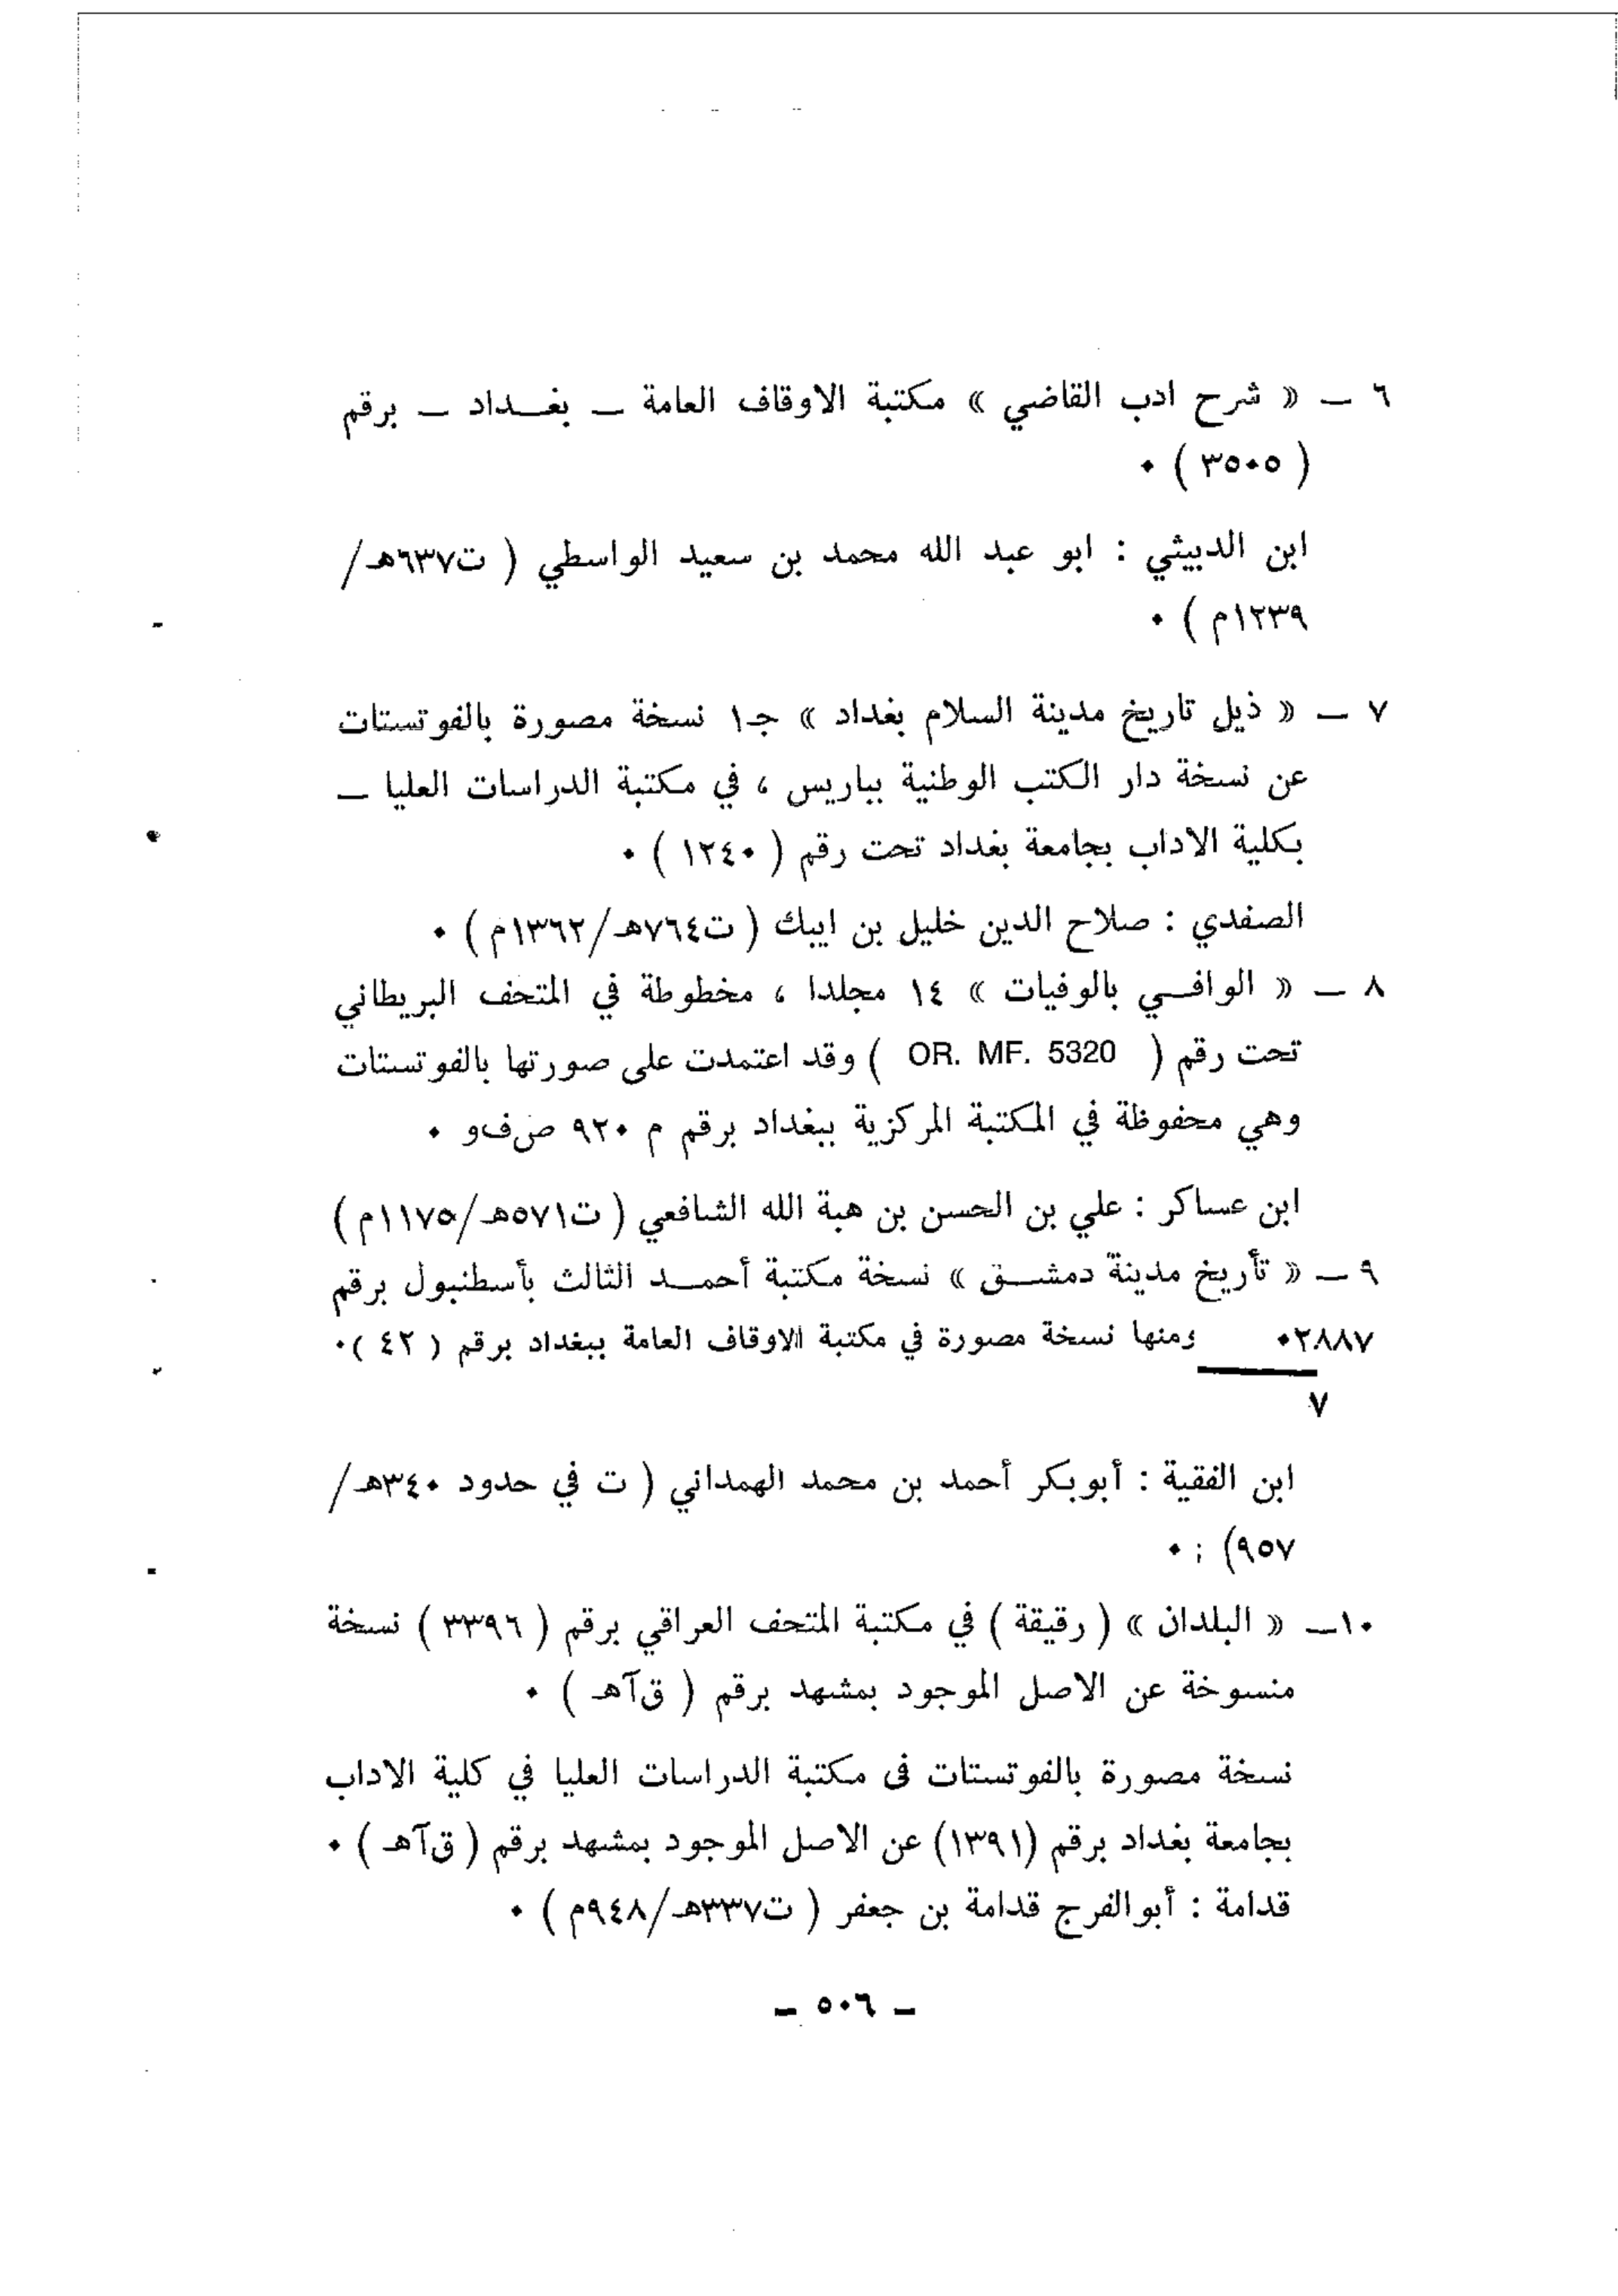 ٦ ـ « شرح ادب القاضي » مكتبة الاوقاف العامة ـ بغـــداد ـ برقم
( ٣٥٠٥ ) ٠
ابن الدبيثي : ابو عبد الله محمد بن سعيد الواسطي ( ت٦٣٧هـ/
١٢٣٩م ) ٠
٧ ـ « ذيل تاريخ مدينة السلام بغداد » جـ١ نسخة مصورة بالفوتستات
عن نسخة دار الكتب الوطنية بباريس ، في مكتبة الدراسات العليا ـ
بكلية الاداب بجامعة بغداد تحت رقم ( ١٢٤٠ ) ٠
الصفدي : صلاح الدين خليل بن ايبك ( ت٧٦٤هـ/١٣٦٢م ) ٠
٨ ـ « الوافـــي بالوفيات » ١٤ مجلدا ، مخطوطة في المتحف البريطاني
تحت رقم ( OR. MF. 5320 ) وقد اعتمدت على صورتها بالفوتستات
وهي محفوظة في المكتبة المركزية ببغداد برقم م ٩٢٠ ص‌ف‌و ٠
ابن عساكر : علي بن الحسن بن هبة الله الشافعي ( ت٥٧١هـ/١١٧٥م )
٩ ـ « تأريخ مدينة دمشـــق » نسخة مكتبة أحمـــد الثالث بأسطنبول برقم
٢٨٨٧٠ ومنها نسخة مصورة في مكتبة الاوقاف العامة ببغداد برقم ( ٤٢ )٠
٧
ابن الفقية : أبوبكر أحمد بن محمد الهمداني ( ت في حدود ٣٤٠هـ/
٩٥٧) ; ٠
١٠ـ « البلدان » ( رقيقة ) في مكتبة المتحف العراقي برقم ( ٣٣٩٦ ) نسخة
منسوخة عن الاصل الموجود بمشهد برقم ( ق‌آهـ ) ٠
نسخة مصورة بالفوتستات فى مكتبة الدراسات العليا في كلية الاداب
بجامعة بغداد برقم (١٣٩١) عن الاصل الموجود بمشهد برقم ( ق‌آهـ ) ٠
قدامة : أبوالفرج قدامة بن جعفر ( ت٣٣٧هـ/٩٤٨م ) ٠
ـ ٥٠٦ ـ